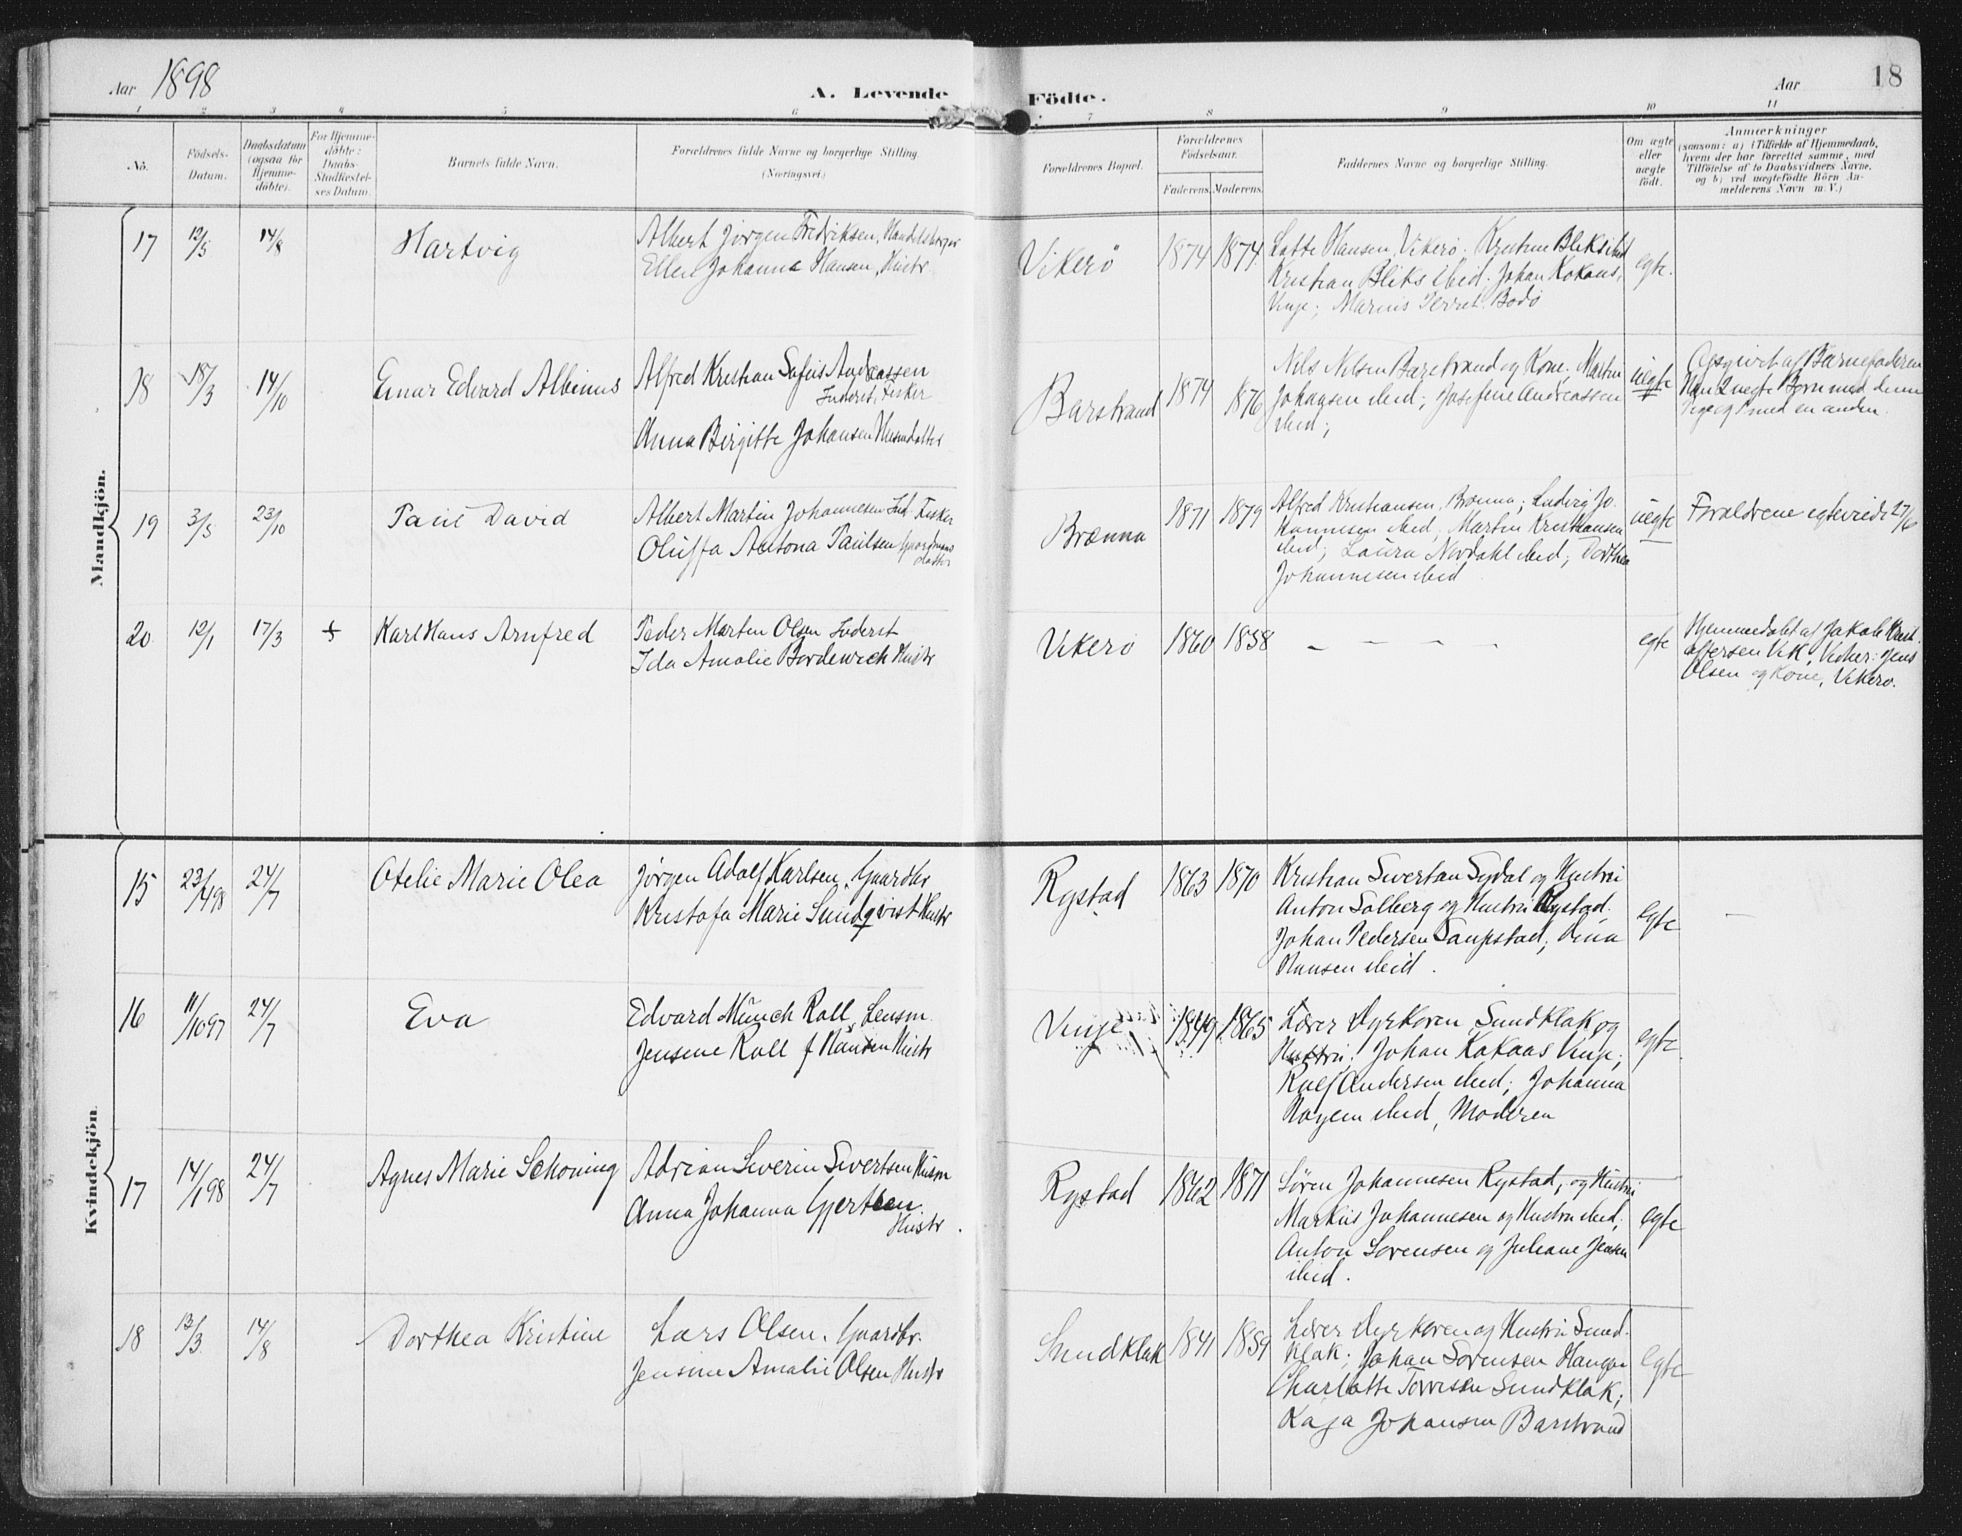 Aar 1898
A. Levende Födte.
Aar
18
1 2 3 4 5 6 7 8 9 10 11
No.
Födsels-
Datum.
Daabsdatum
(ogsaa for
Hjemme-
döbte).
For Hjemme-
döbte:
Daabs-
Stadfæstel-
ses Datum.
Barnets fulde Navn.
Forældrenes fulde Navne og borgerlige Stilling.
(Næringsvei.)
Forældrenes Bopæl.
Forældrenes
Födselsaar.
Faderens. Moderens.
Faddernes Navne og borgerlige Stilling.
Om ægte
eller
uægte
födt.
Anmærkninger
(saasom: a) i Tilfælde af Hjemmedaab,
hvem der har forrettet samme, med
Tilföielse af to Daabsvidners Navne,
og b) ved uægtefödte Börn An-
melderens Navn m. V.)
Mandkjön.
17 12/5 14/8
Hartvig
Albert Jörgen Fredriksen, Handelsborger
Ellen Johanna Hansen, Hustr
Vikerö
1874 1874
Lotte Hansen, Vikerö. Kristine Bliks ibid
Kristian Bliks ibid. Johan Kokaas,
Vinje; Marius Bodö
egte.
18 18/3 14/10
Einar Edvard Albinus
Alfred Kristian Sofus Andreassen
Inderst, Fisker
Anna Birgitte Johansen Husmdatter
Barstrand
1874 1876
Nils Nilsen Barstrand og Kone, Martin
Johansen ibid; Josefine Andreassen
ibid;
uegte
Opgivet af Barnefaderen
Han 2 uegte Børn med denne
Pige og 1 med en anden.
19 3/5 23/10
Paul David
Albert Martin Johannesen Ind. Fisker
Oluffa Antona Paulsen Gaardmands
datter
Brænna
1871 1879
Alfred Kristiansen, Brænna; Ludvig Jo
hannesen ibid, Martin Kristiansen
ibid; Laura Nordahl ibid; Dorthea
Johannesen ibid
uegte
Forældrene egteviede 27/6
20. 12/1 17/3 +
Karl Hans Arnfred
Peder Marten Olsen Inderst
Ida Amalie Bordewich Hustr
Vikerö
1860 1858
– – – –
egte
Hjemmedøbt af Jakob Krist-
offersen Vik, Vidner: Jens
Olsen og Kone, Vikerö.
Kvindekjön.
15 23/4 98 24/7
Otelie Marie Olea
Jörgen Adolf Karlsen, Gaardbr
Kristofa Marie Sundqvist Hustr
Rystad
1863 1870
Kristian Sivertsen Sydal og Hustru
Anton Solberg og Hustru Rystad.
Johan Pedersen Taupstad; Dina
Hansen ibid.
egte
–
16 11/10 97 24/7
Eva
Edvard Münch Rall, Lensm.
Jensine Rall f Hansen Hustr
Vinje
1849 1865
Lærer Dyrkoren Sundklak og
Hustru. Johan Kokaas Vinje;
Rolf Andersen ibid; Johanna
Hagen ibid, Moderen
egte
17 14/1 98 24/7
Agnes Marie Schoning
Adrian Severin Sivertsen Husm
Anna Johanna Gjertsen
Hustr.
Rystad
1862 1871
Søren Johannesen Rystad, og Hustru
Markus Johannesen og Hustru ibid;
Anton Sorensen og Juliane Jensen
ibid.
egte
18 13/3 14/8
Dorthea Kristine
Lars Olsen, Gaardbr.
Jensine Amalie Olsen Hustr
Sundklak
1841 1859
Lærer Dyrkoren og Hustru Sund-
klak; Johan Sorensen
Charlotte Torrissen Sundklak;
Kaja Johansen Barstrand
egte